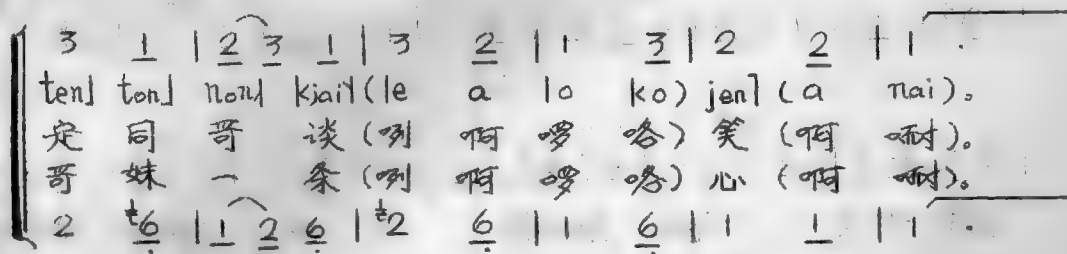 3 1 | 2 3 1 | 3 2 | 1 3 | 2 2 | 1 .
ten˩ ton˩ (le a lo ko) (a nai)。
定 同 哥 谈 (咧 啊 啰 咯) 笑 (啊 耐)。
哥 妹 一 条 (咧 啊 啰 咯) 心 (啊 耐)。
2 6 | 1 2 6 | 2 6 | 1 6 | 1 1 | 1 .